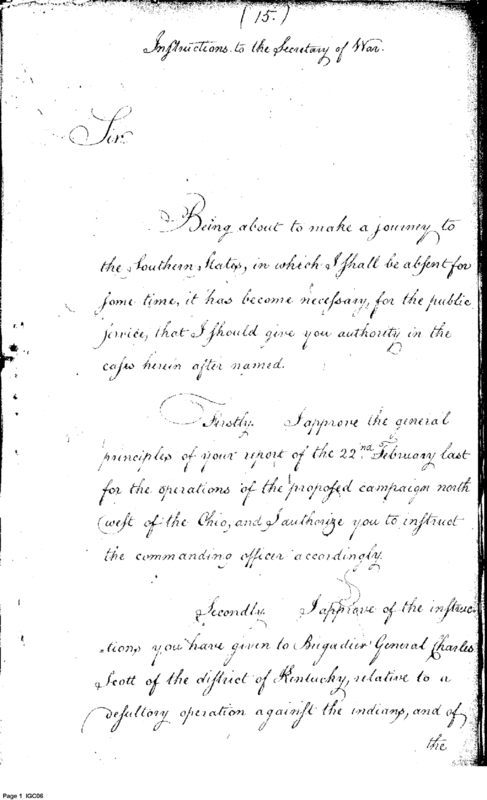 (15.)
Instructions to the Secretary of War.
Sir.
Being about to make a journey to
the Southern States, in which I shall be absent for
some time, it has become necessary, for the public
service, that I should give you authority in the
cases herein after named.
Firstly. I approve the general
principles of your report of the 22nd February last
for the operations of the proposed campaign north
west of the Ohio, and I authorize you to instruct
the commanding officer accordingly.
Secondly. I approve of the instruc-
-tions you have given to Brigadier General Charles
Scott of the district of Kentucky, relative to a
desultory operation against the indians, and of
the
Page 1 IGC06